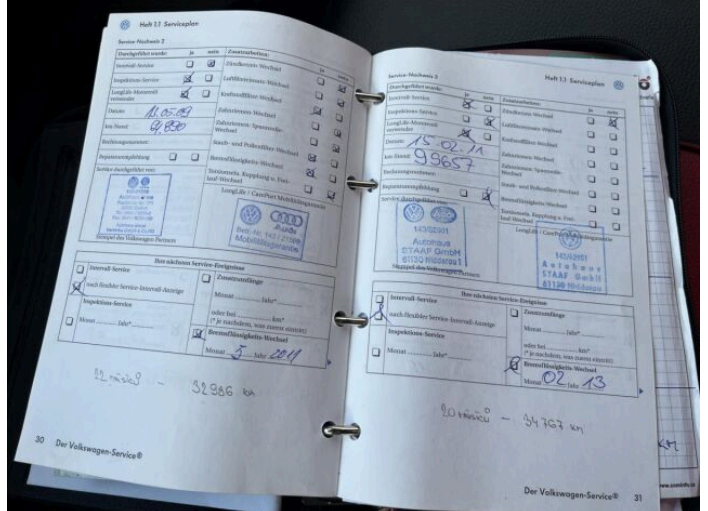 Heft 1.1 Serviceplan
Service-Nachweis 2
Durchgeführt wurde: ja nein
Intervall-Service
Inspektions-Service
LongLife-Motorenöl verwendet
Datum: 11.05.09
km-Stand: 64.890
Rechnungsnummer:
Reparaturempfehlung
Service durchgeführt von:
Stempel des Volkswagen Partners
Zusatzarbeiten: ja nein
Zündkerzen-Wechsel
Luftfiltereinsatz-Wechsel
Kraftstofffilter-Wechsel
Zahnriemen-Wechsel
Zahnriemen-Spannrolle-Wechsel
Staub- und Pollenfilter-Wechsel
Bremsflüssigkeits-Wechsel
LongLife / CarePort Mobilitätsgarantie
Audi
Mobilitätsgarantie
Ihre nächsten Service-Ereignisse
Intervall-Service
nach flexibler Service-Intervall-Anzeige
Inspektions-Service
Monat Jahr*
Zusatzumfänge
Monat Jahr*
oder bei km*
(* je nachdem, was zuerst eintritt)
Bremsflüssigkeits-Wechsel
Monat 5 Jahr 2011
22 měsíců – 32986 km
30 Der Volkswagen-Service®
Heft 1.1 Serviceplan
Service-Nachweis 3
Durchgeführt wurde: ja nein
Intervall-Service
Inspektions-Service
LongLife-Motorenöl verwendet
Datum: 15.02.11
km-Stand: 99657
Rechnungsnummer:
Reparaturempfehlung
Service durchgeführt von:
143/02901
Autohaus
STAAF GmbH
61130 Nidderau 1
Stempel des Volkswagen Partners
Zusatzarbeiten: ja nein
Zündkerzen-Wechsel
Luftfiltereinsatz-Wechsel
Kraftstofffilter-Wechsel
Zahnriemen-Wechsel
Zahnriemen-Spannrolle-Wechsel
Staub- und Pollenfilter-Wechsel
Bremsflüssigkeits-Wechsel
LongLife / CarePort Mobilitätsgarantie
143/02901
Autohaus
STAAF GmbH
61130 Nidderau
Ihre nächsten Service-Ereignisse
Intervall-Service
nach flexibler Service-Intervall-Anzeige
Inspektions-Service
Monat Jahr*
Zusatzumfänge
Monat Jahr*
oder bei km*
(* je nachdem, was zuerst eintritt)
Bremsflüssigkeits-Wechsel
Monat 02 Jahr 13
20 měsíců – 34767 km
Der Volkswagen-Service® 31